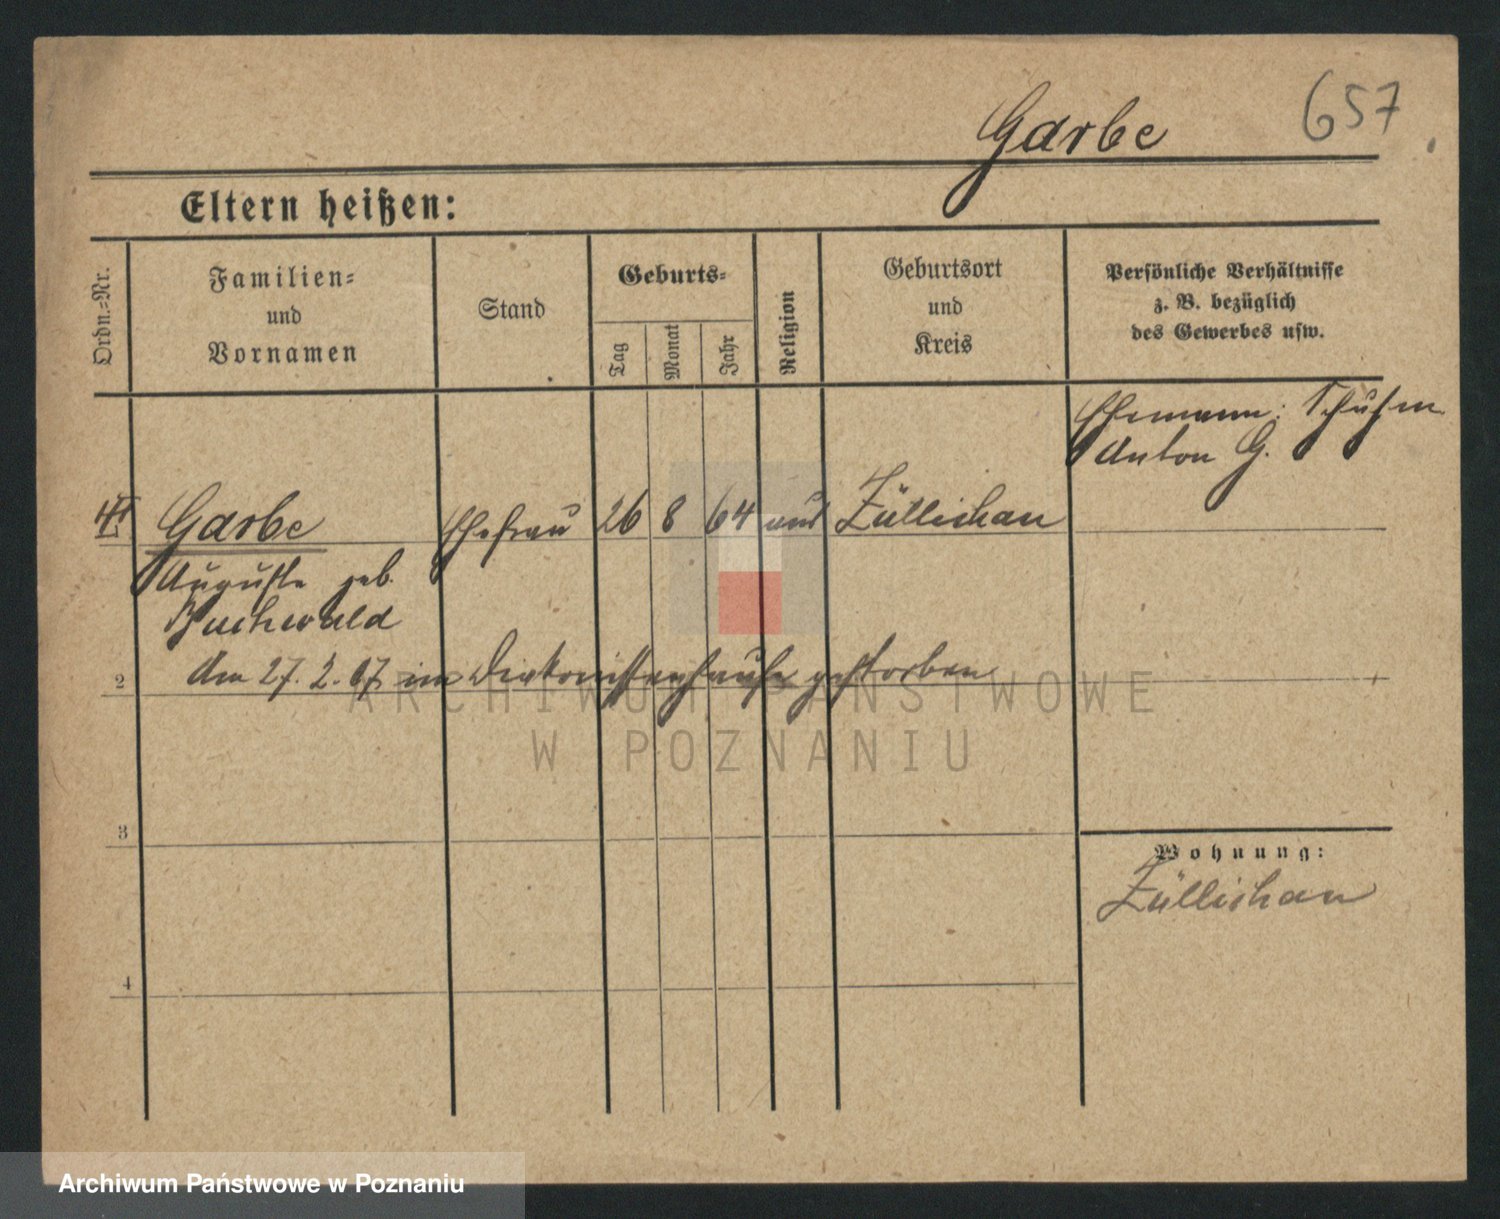 657
Garbe
Eltern heißen:
Ordn.-Nr.
Familien-
und
Vornamen
Stand
Geburts-
Tag
Monat
Jahr
Religion
Geburtsort
und
Kreis
Persönliche Verhältnisse
z. B. bezüglich
des Gewerbes usw.
Ehemann: Schuhm.
Anton G.
Garbe Ehefrau 26 8 64 Züllichau
Auguste geb.
Buchwald
2 den 27. 2. 07 im Diakonissenhause gestorben
3
4
Wohnung:
Züllichau
ARCHIWUM PAŃSTWOWE
W POZNANIU
Archiwum Państwowe w Poznaniu